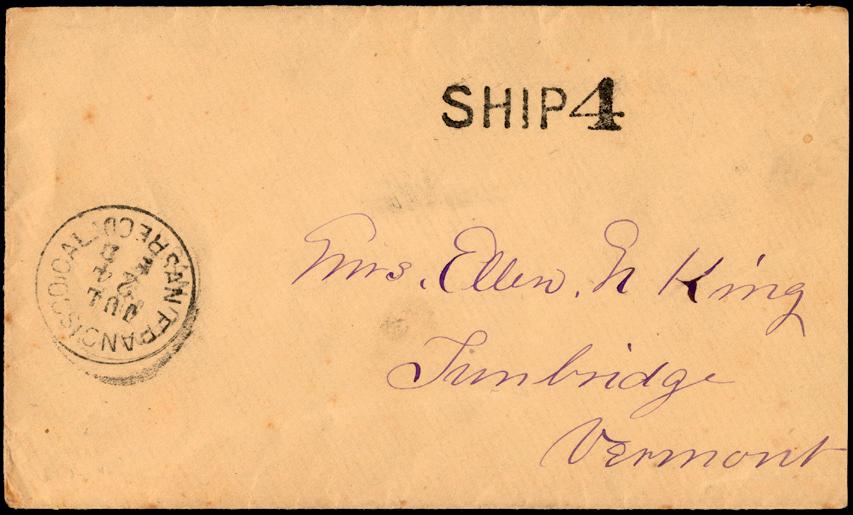 SHIP 4
SAN FRANCISCO, CAL. REC'D
JUL
24
Mrs. Ellen. N King
Tunbridge
Vermont